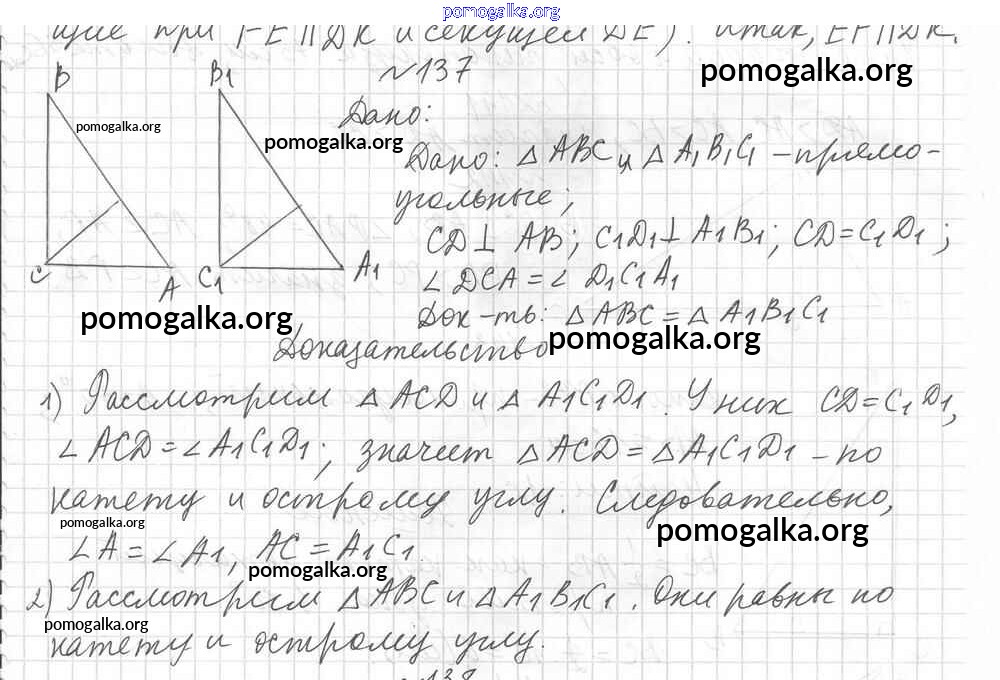 pomogalka.org
щие при FE || DK и секущей DE). Итак, EF || DK.
№137
pomogalka.org
B
B1
pomogalka.org
pomogalka.org
Дано:
Дано: △ ABC и △ A1B1C1 – прямо-
угольные;
CD ⊥ AB; C1D1 ⊥ A1B1; CD = C1D1;
∠ DCA = ∠ D1C1A1
C
A
C1
A1
Док-ть: △ ABC = △ A1B1C1
pomogalka.org
Доказательство
pomogalka.org
1) Рассмотрим △ ACD и △ A1C1D1. У них CD = C1D1,
∠ ACD = ∠ A1C1D1; значит △ ACD = △ A1C1D1 – по
катету и острому углу. Следовательно,
pomogalka.org
pomogalka.org
∠ A = ∠ A1, AC = A1C1.
pomogalka.org
2) Рассмотрим △ ABC и △ A1B1C1. Они равны по
pomogalka.org
катету и острому углу.
138